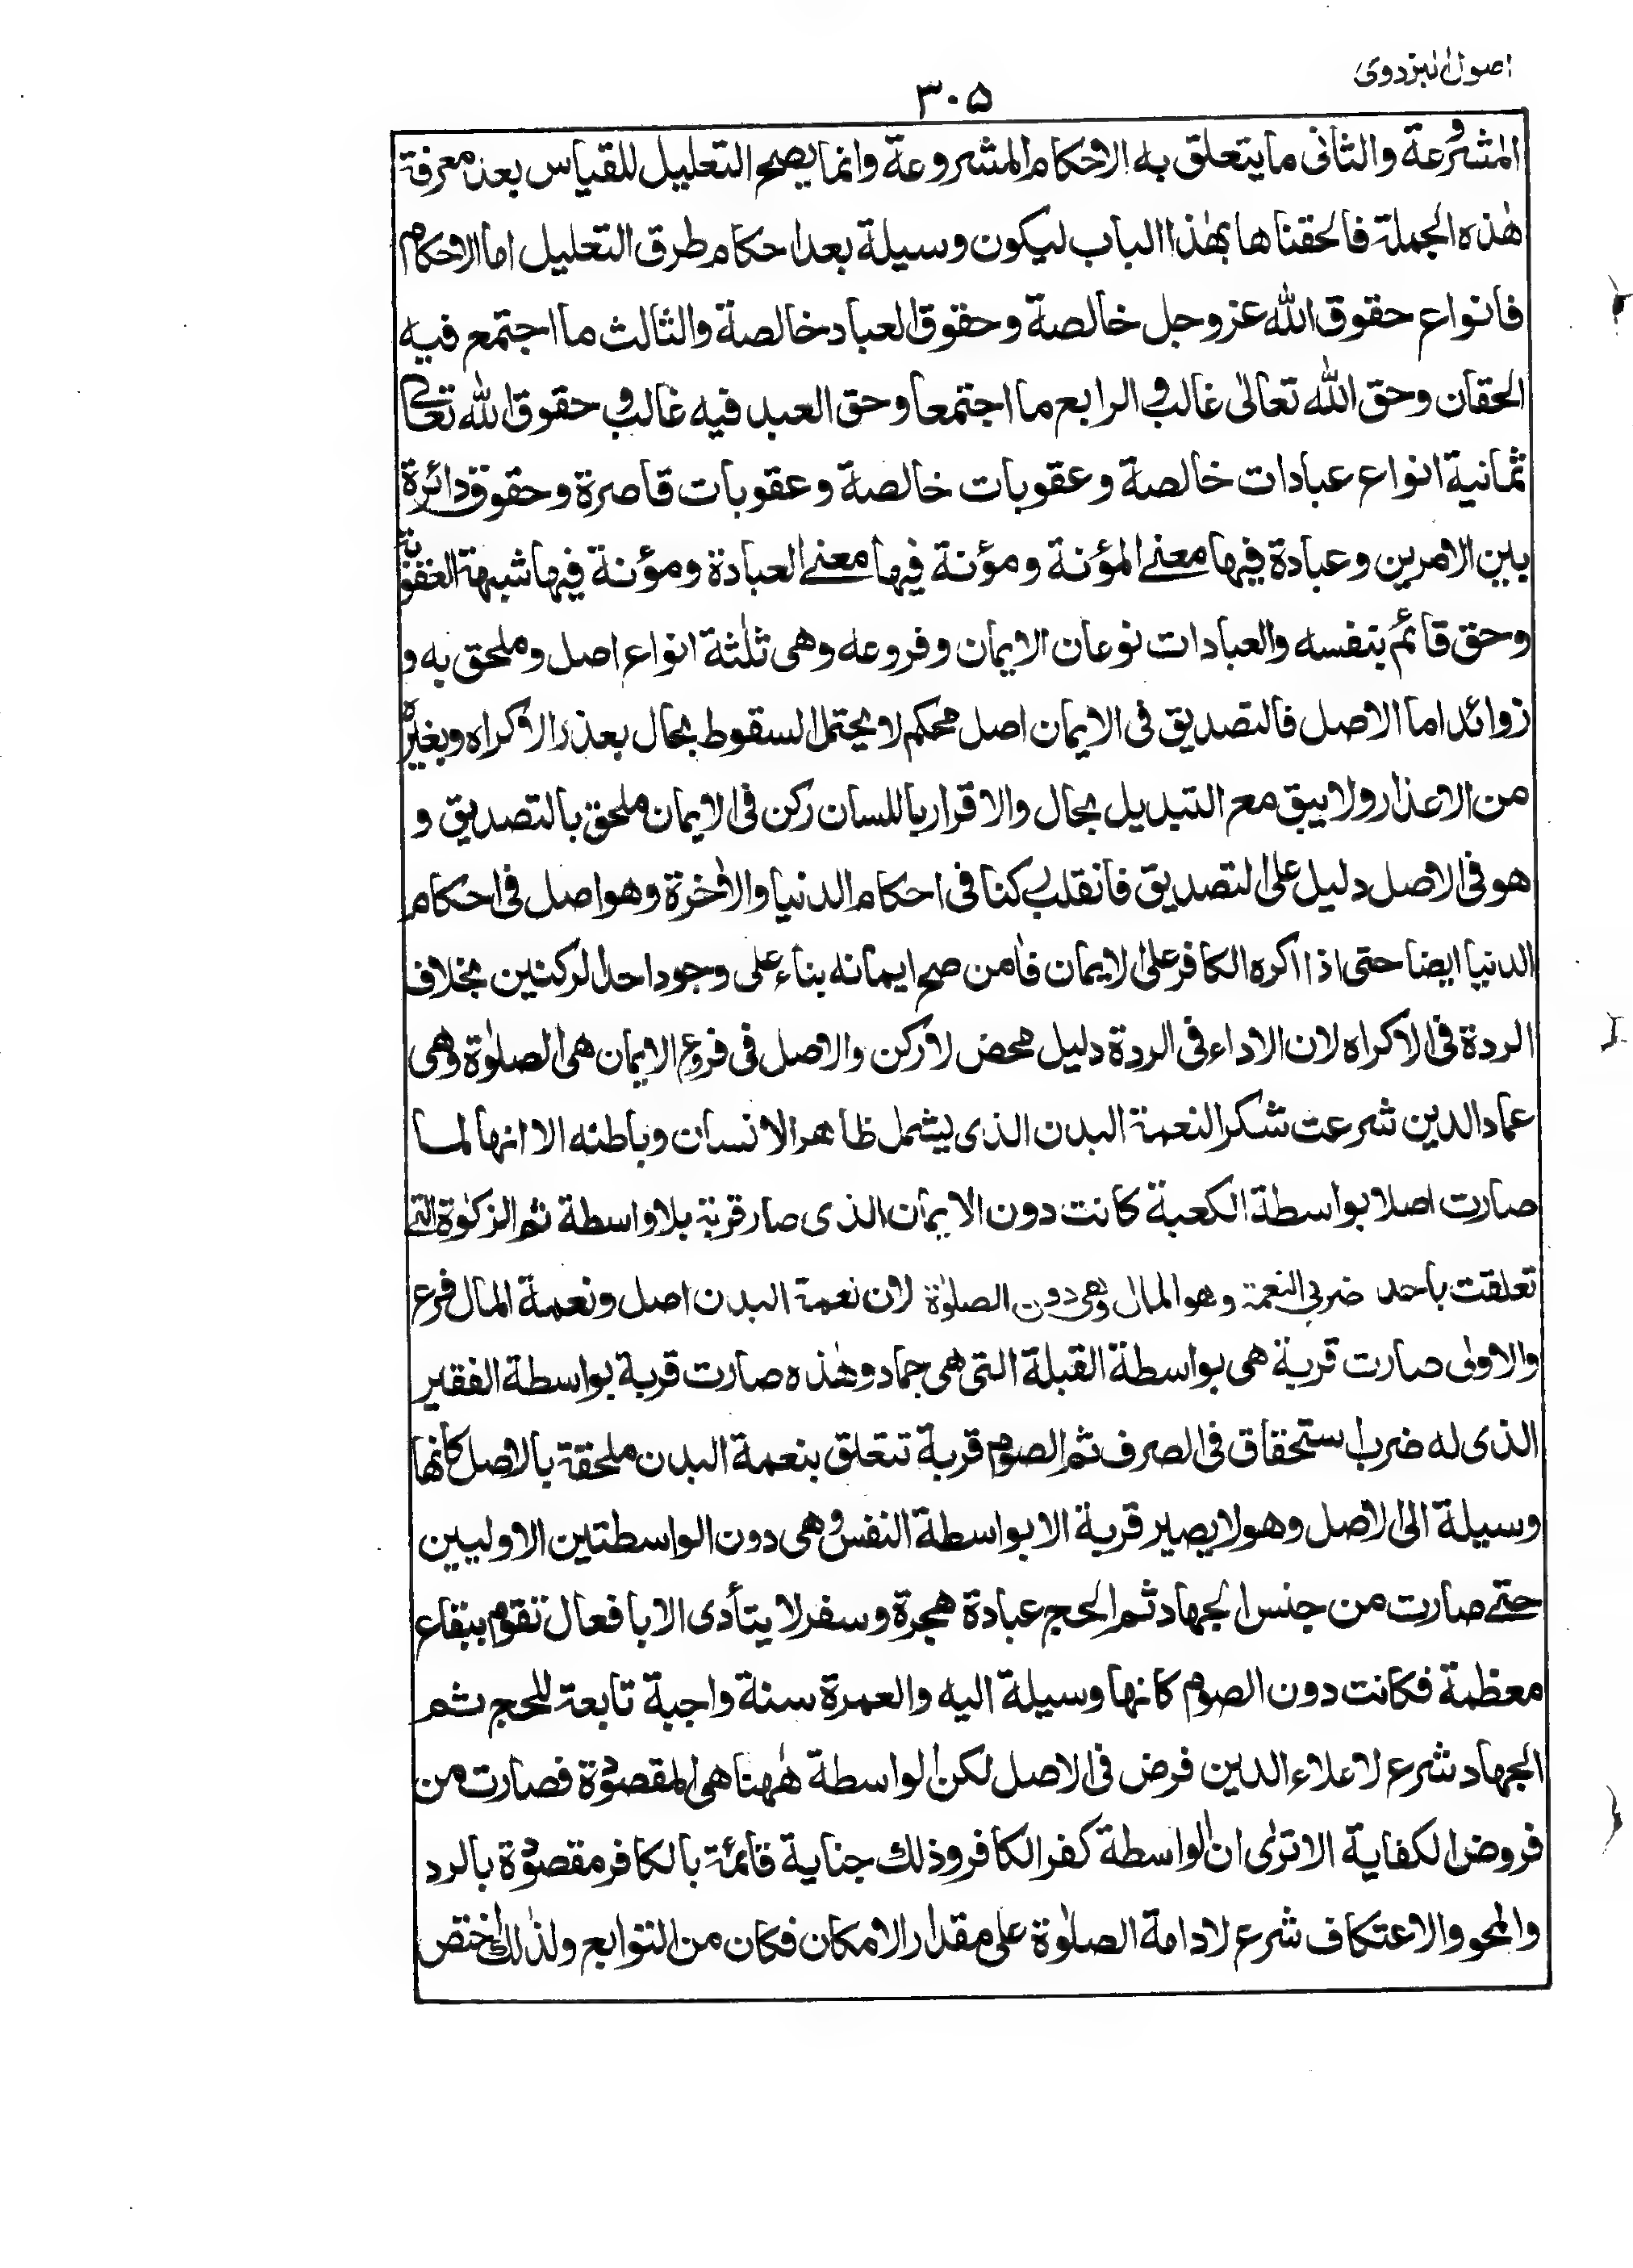 اصول البزدوی
۳۰۵
المشروعة والثانی ما یتعلق به الاحکام المشروعة وانما یصح التعلیل للقیاس بعد معرفة
هٰذه الجملة فالحقناها بهٰذا الباب لیکون وسیلة بعد احکام طرق التعلیل اما الاحکام
فانواع حقوق الله عزوجل خالصة وحقوق العباد خالصة والثالث ما اجتمع فیه
الحقان وحق الله تعالٰی غالب والرابع ما اجتمعا وحق العبد فیه غالب وحقوق الله تعالی
ثمانیة انواع عبادات خالصة وعقوبات خالصة وعقوبات قاصرة وحقوق دائرة
بین الامرین وعبادة فیها معنی المؤنة ومؤنة فیها معنی العبادة ومؤنة فیها شبهة العقوبة
وحق قائم بنفسه والعبادات نوعان الایمان وفروعه وهی ثلٰثة انواع اصل وملحق به و
زوائد اما الاصل فالتصدیق فی الایمان اصل محکم لا یحتمل السقوط بحال بعذر الاکراه وبغیره
من الاعذار ولا یبق مع التبدیل بحال والاقرار باللسان رکن فی الایمان ملحق بالتصدیق و
هو فی الاصل دلیل علی التصدیق فانقلب رکنا فی احکام الدنیا والاٰخرة وهو اصل فی احکام
الدنیا ایضا حتی اذا اکره الکافر علی الایمان فاٰمن صح ایمانه بناء علی وجود احد الرکنین بخلاف
الردة فی الاکراه لان الاداء فی الردة دلیل محض لا رکن والاصل فی فروع الایمان هی الصلوٰة وهی
عماد الدین شرعت شکر النعمة البدن الذی یشمل ظاهر الانسان وباطنه الا انها لما
صارت اصلا بواسطة الکعبة کانت دون الایمان الذی صار قربة بلا واسطة ثم الزکوٰة التی
تعلقت باحد ضربی النعمة وهو المال وهی دون الصلوٰة لان نعمة البدن اصل ونعمة المال فرع
والاولٰی صارت قربة هی بواسطة القبلة التی هی جماد وهٰذه صارت قربة بواسطة الفقیر
الذی له ضرب استحقاق فی الصرف ثم الصوم قربة تتعلق بنعمة البدن ملحقة بالاصل کانها
وسیلة الی الاصل وهو لا یصیر قربة الا بواسطة النفس وهی دون الواسطتین الاولیین
حتی صارت من جنس الجهاد ثم الحج عبادة هجرة وسفر لا یتأدی الا بافعال تقوم ببقاع
معظمة فکانت دون الصوم کانها وسیلة الیه والعمرة سنة واجبة تابعة للحج ثم
الجهاد شرع لاعلاء الدین فرض فی الاصل لکن الواسطة هٰهنا هی المقصودة فصارت من
فروض الکفایة الا ترٰی ان الواسطة کفر الکافر وذلك جنایة قائمة بالکافر مقصودة بالرد
والمحو والاعتکاف شرع لادامة الصلوٰة علی مقدار الامکان فکان من التوابع ولذٰلك اختص